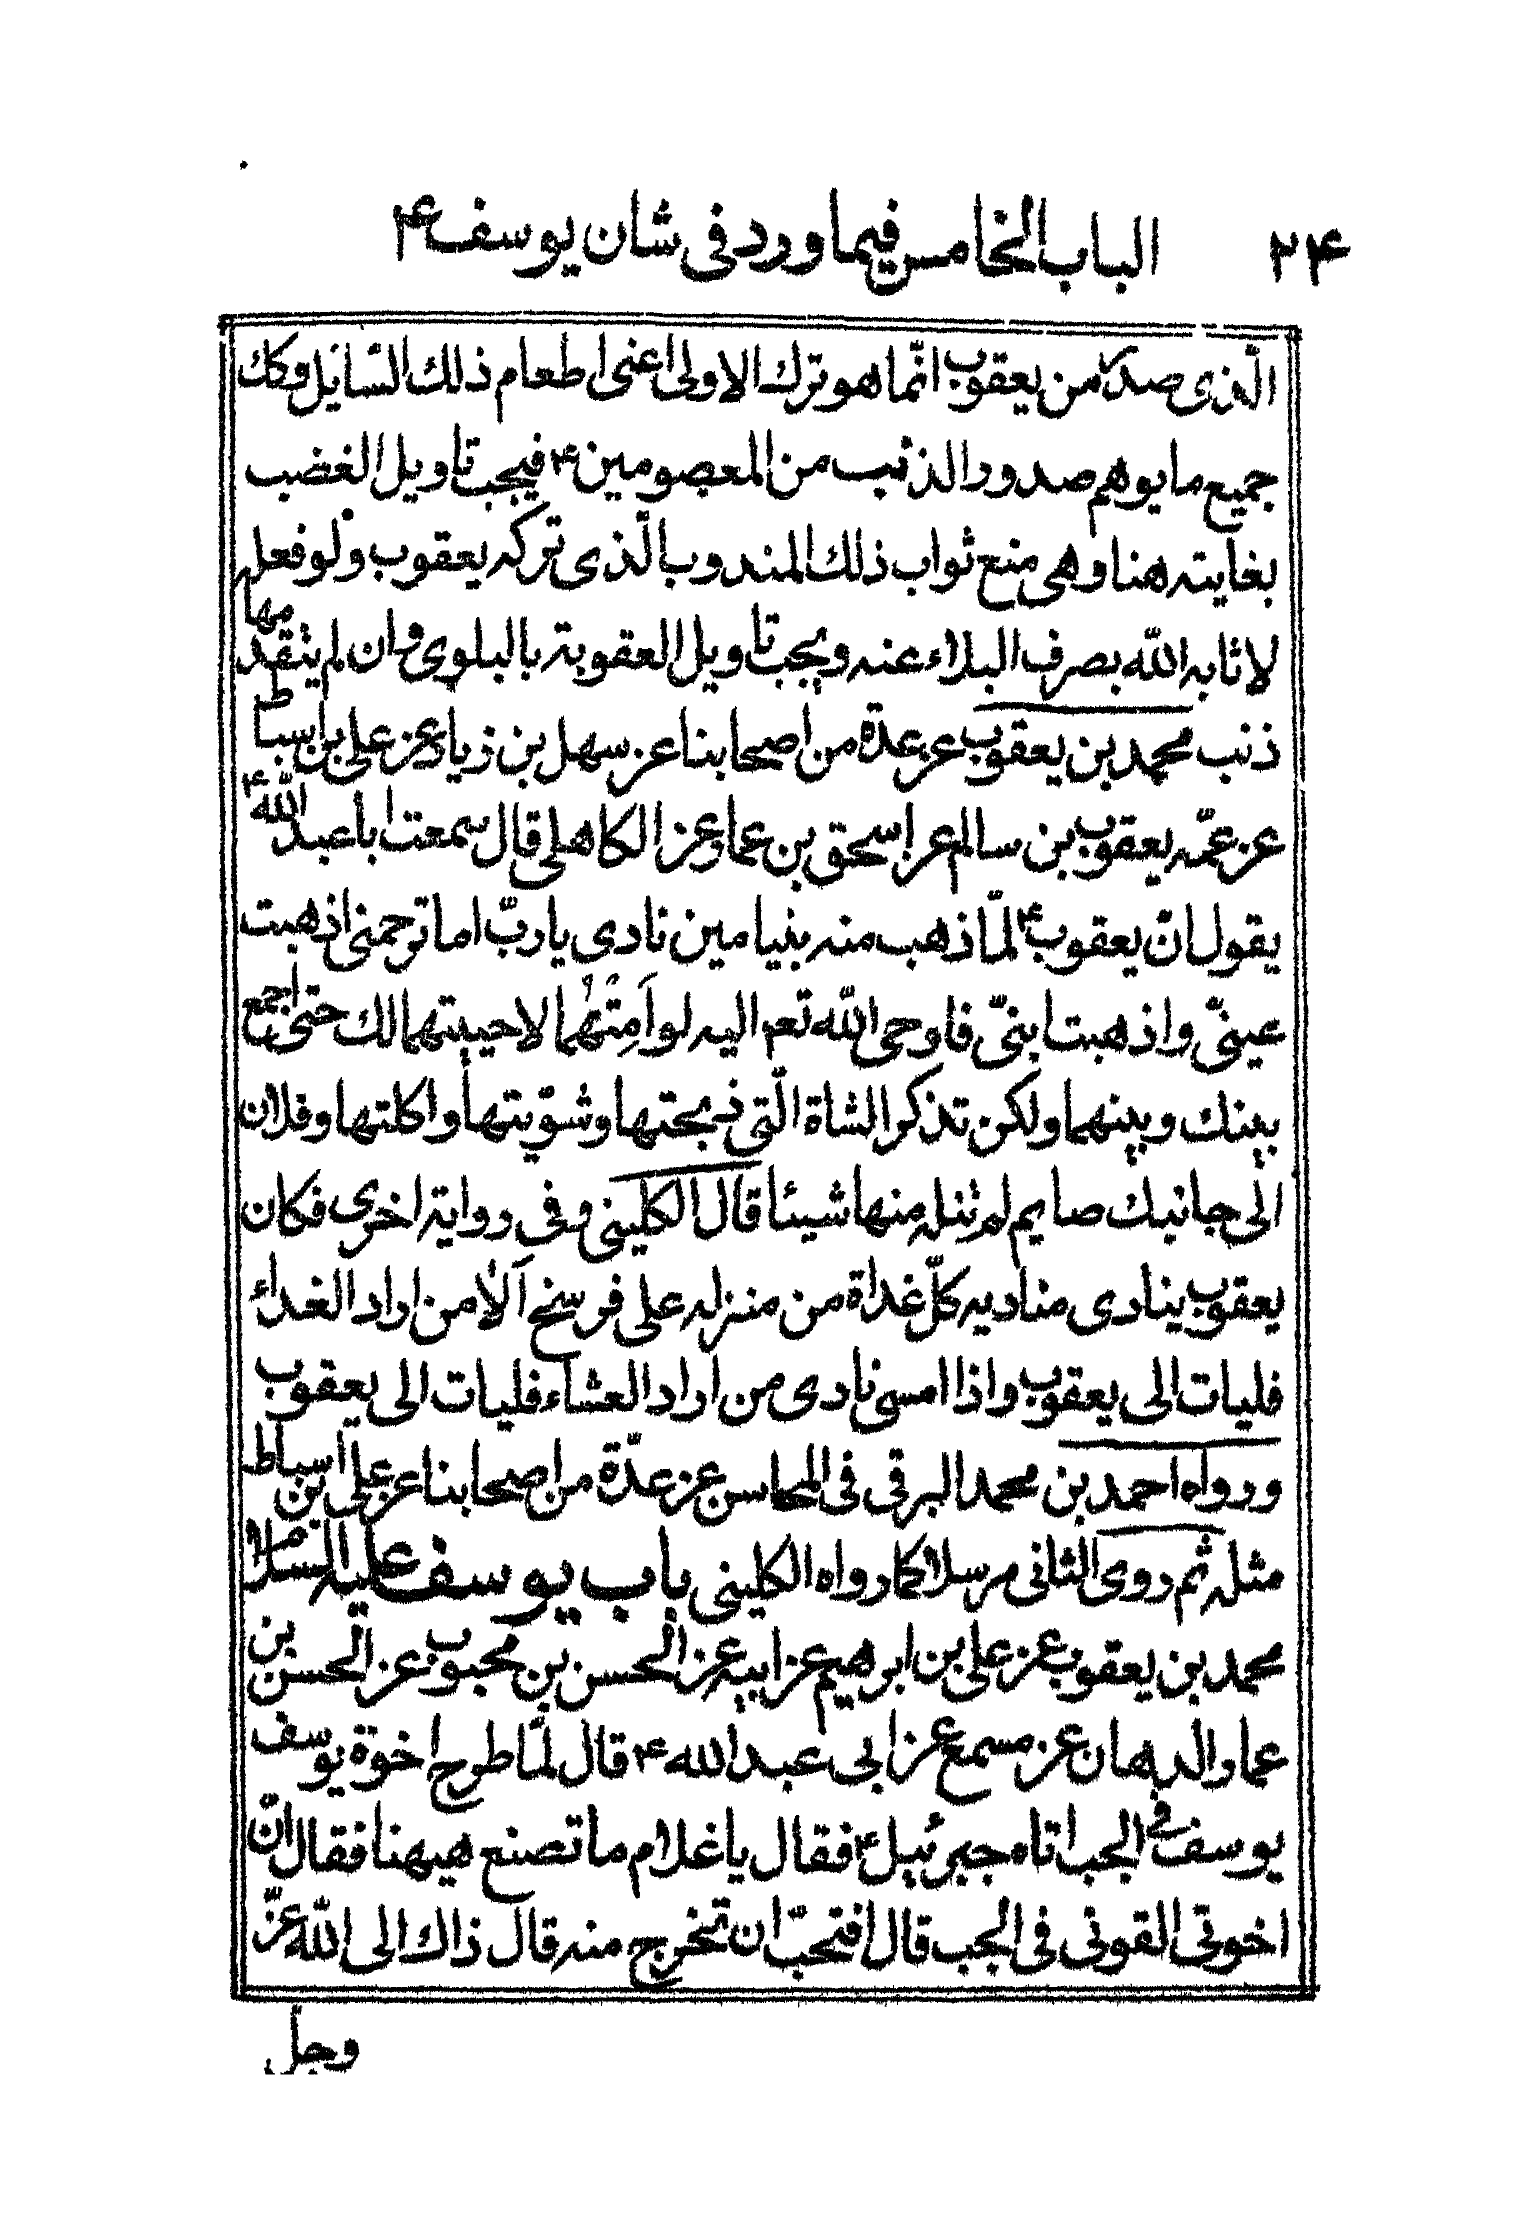 ۲۴ الباب الخامس فيما ورد فى شان يوسف ع
الّذى صدر من يعقوب انّما هو ترك الاولى اعنى اطعام ذلك السّايل وكك
جميع ما يوهم صدور الذنب من المعصومين ع فيجب تاويل الغضب
بغايته هنا وهى منع ثواب ذلك المندوب الّذى تركه يعقوب ولو فعله
لاثابه اللّه بصرف البلاء عنه ويجب تاويل العقوبة بالبلوى وان لم يتقدمها
ذنب محمد بن يعقوب عن عدة من اصحابنا عن سهل بن زياد عن على بن اسباط
عن عمّه يعقوب بن سالم عن اسحق بن عمار عن الكاهلى قال سمعت ابا عبد اللّه ع
يقول انّ يعقوب ع لمّا ذهب منه بنيامين نادى يا ربّ اما ترحمنى اذهبت
عينىّ واذهبت ابنىّ فاوحى اللّه تعم اليه لو اَمِتُّهُما لاحييتهما لك حتى اجمع
بينك وبينهما ولكن تذكر الشاة الّتى ذبحتها وشوّيتها واكلتها وفلان
الى جانبك صايم لم تنله منها شيئا قال الكلينى وفى رواية اخرى فكان
يعقوب ينادى مناديه كلّ غداة من منزله على فرسخ اَلا من اراد الغداء
فليات الى يعقوب واذا امسى نادى من اراد العشاء فليات الى يعقوب
ورواه احمد بن محمد البرقى فى المحاسن عن عدّة من اصحابنا عن على بن اسباط
مثله ثم روى الثانى مرسلا كما رواه الكلينى باب يوسف عليه السلام
محمد بن يعقوب عن على بن ابرهيم عن ابيه عن الحسن بن محبوب عن الحسن بن
عمار الدهان عن مسمع عن ابى عبد الله ع قال لمّا طرح اخوة يوسف
يوسف فى الجب اتاه جبرئيل ع فقال يا غلام ما تصنع هيهنا فقال انّ
اخوتى القونى فى الجب قال افتحبّ ان تخرج منه قال ذاك الى اللّه عزّ
وجل